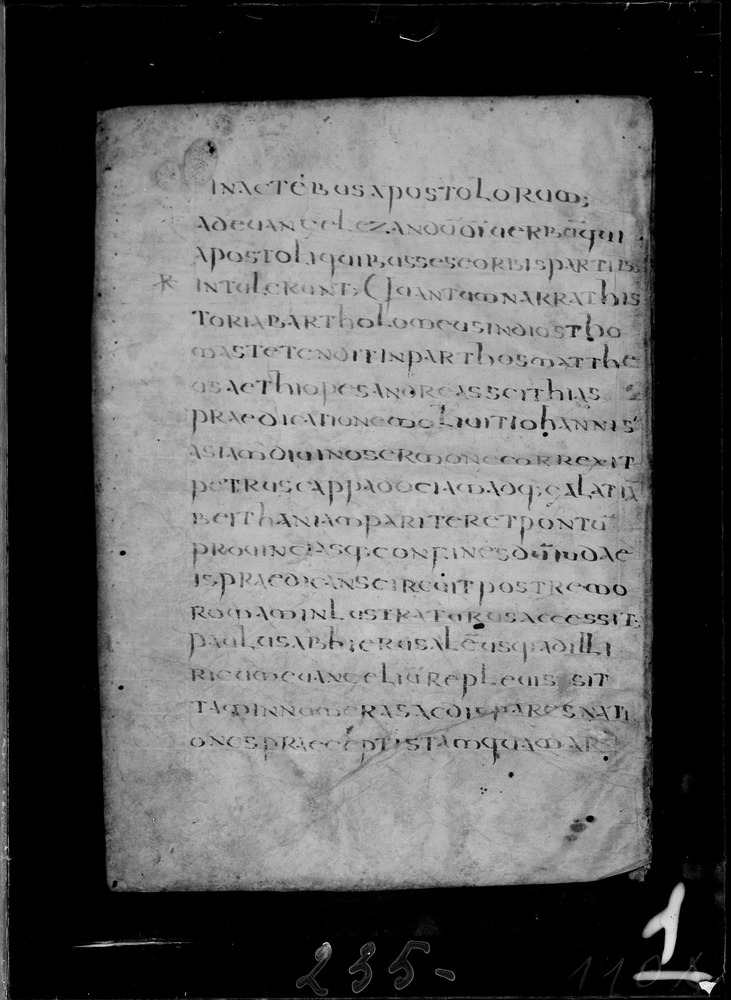 INACTEBUSAPOSTOLORUM;
ADEUANGELEZANDUDĪUERBQUI
APOSTOLIQUIBUSSESEORBISPARTIIS
INTULERUNT; QUANTUMNARRATHIS
TORIABARTHOLOMEUSINDIOSTHO
MASTETENDITINPARTHOSMATTHE
USAETHIOPESANDREASSCITHIAS
PRAEDICATIONEMOLIUITIOHANNIS
ASIAMDIUINOSERMONECORREXIT
PETRUSCAPPADOCIAMADQ;GALATIĀ
BEITHANIAMPARITERETPONTŪ
PROUINCIASQ;CONFINESDUMIUDAE
ISPRAEDICANSCIRCUITPOSTREMO
ROMAMINLUSTRATURUSACCESSIT;
PAULUSABHIERUSALĒUSQ;ADILLI
RICUMEUANGELIŪREPLEUIS SIT
TAMINNUMERASACDISPARESNATI
ONESPRAECEPTISTAMQUAMARS
235-
1